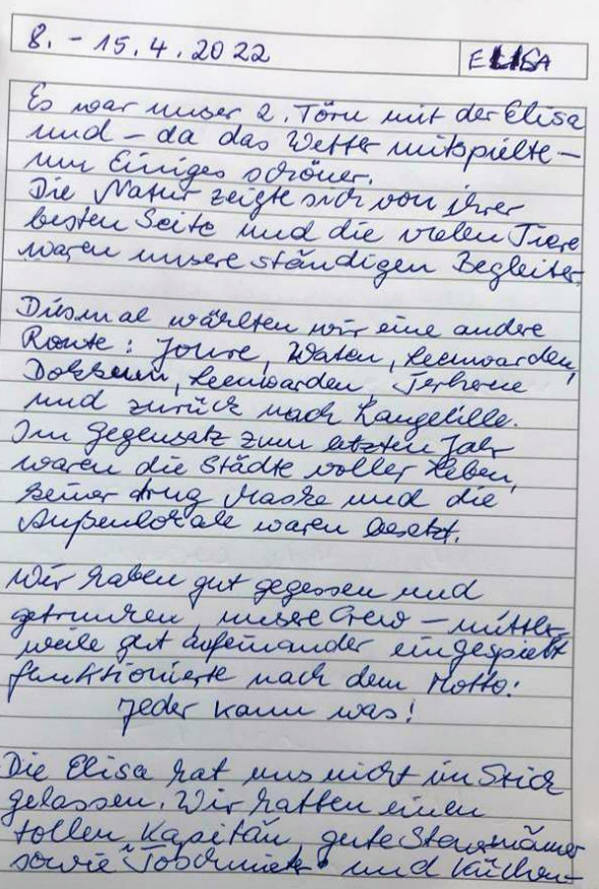 8. - 15.4.2022 ELISA
Es war unser 2. Törn mit der Elisa
und – da das Wetter mitspielte –
um Einiges schöner.
Die Natur zeigte sich von ihrer
besten Seite und die vielen Tiere
waren unsere ständigen Begleiter.
Diesmal wählten wir eine andere
Route: Joure, Warten, Leeuwarden,
Dokkum, Leeuwarden, Terherne
und zurück nach Langelille.
Im Gegensatz zum letzten Jahr
waren die Städte voller Leben,
keiner trug Maske und die
Außenlokale waren besetzt.
Wir haben gut gegessen und
getrunken, unsere Crew – mittler-
weile gut aufeinander eingespielt
funktionierte nach dem Motto:
jeder kann was!
Die Elisa hat uns nicht im Stich
gelassen. Wir hatten einen
tollen Kapitän, gute Steuermänner
sowie und Küchen-